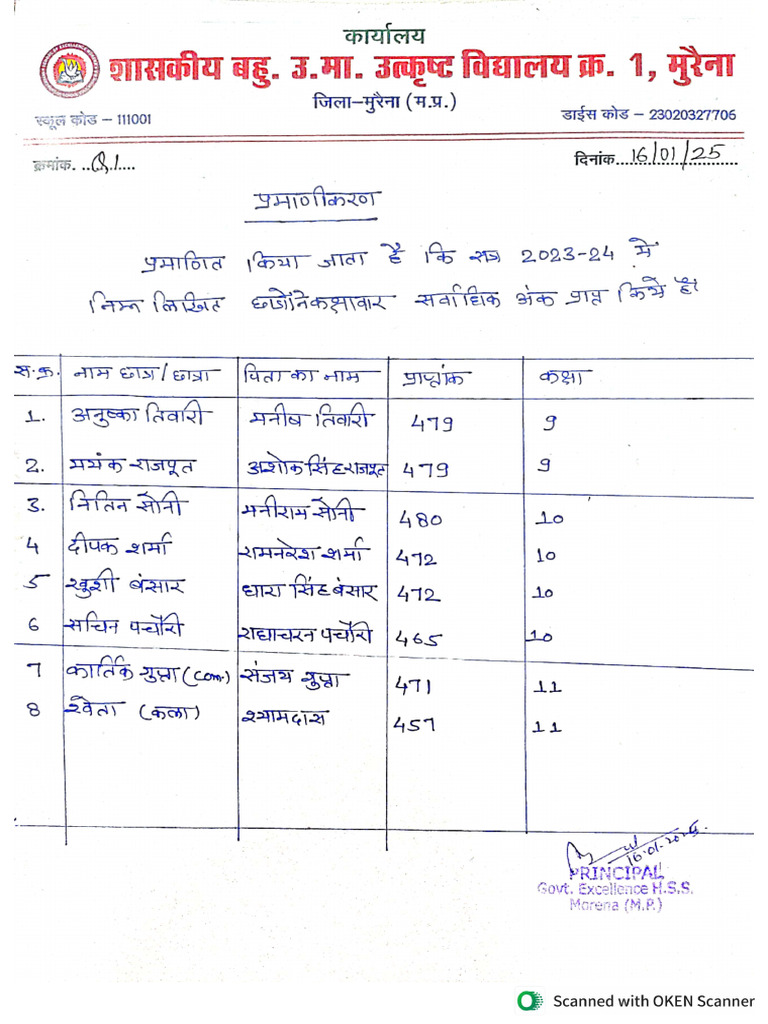 कार्यालय
शासकीय बहु. उ.मा. उत्कृष्ट विद्यालय क्र. 1, मुरैना
जिला–मुरैना (म.प्र.)
स्कूल कोड – 111001 डाईस कोड – 23020327706
क्रमांक. ..Q1.... दिनांक....16/01/25
प्रमाणीकरण
प्रमाणित किया जाता है कि सत्र 2023-24 में
निम्न लिखित छात्रोंने कक्षावार सर्वाधिक अंक प्राप्त किये है।
स.क्र. नाम छात्र/छात्रा पिता का नाम प्राप्तांक कक्षा
1. अनुष्का तिवारी मनीष तिवारी 479 9
2. मयंक राजपूत अशोक सिंह राजपूत 479 9
3. नितिन सोनी मनीराम सोनी 480 10
4 दीपक शर्मा रामनरेश शर्मा 472 10
5 खुशी बंसार धारा सिंह बंसार 472 10
6 सचिन पचौरी राधाचरन पचौरी 465 10
7 कार्तिक गुप्ता (Com.) संजय गुप्ता 471 11
8 श्वेता (कला) श्यामदास 457 11
16.01.2025
PRINCIPAL
Govt. Excellence H.S.S.
Morena (M.P.)
Scanned with OKEN Scanner